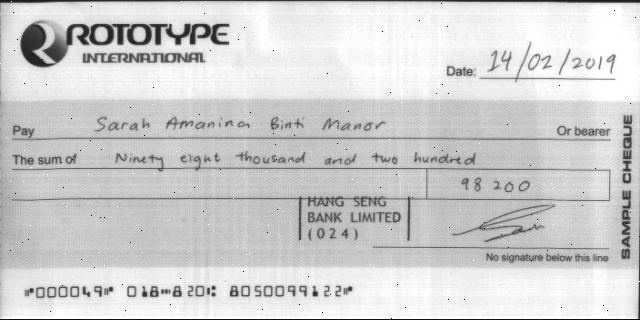 ROTOTYPE
INTERNATIONAL
Date: 14/02/2019
Pay Sarah Amanina Binti Manor Or bearer
The sum of Ninety eight thousand and two hundred
98 200
HANG SENG
BANK LIMITED
(024)
No signature below this line
SAMPLE CHEQUE
⑈000049⑈ 018⑉820⑆ 8050099122⑈